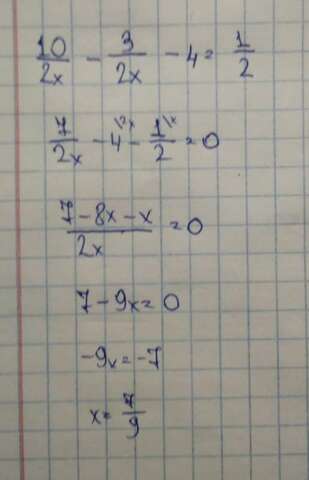 10/2x - 3/2x - 4 = 1/2
7/2x - 4\2x - 1/2\x = 0
7-8x-x/2x = 0
7-9x=0
-9x=-7
x= 7/9